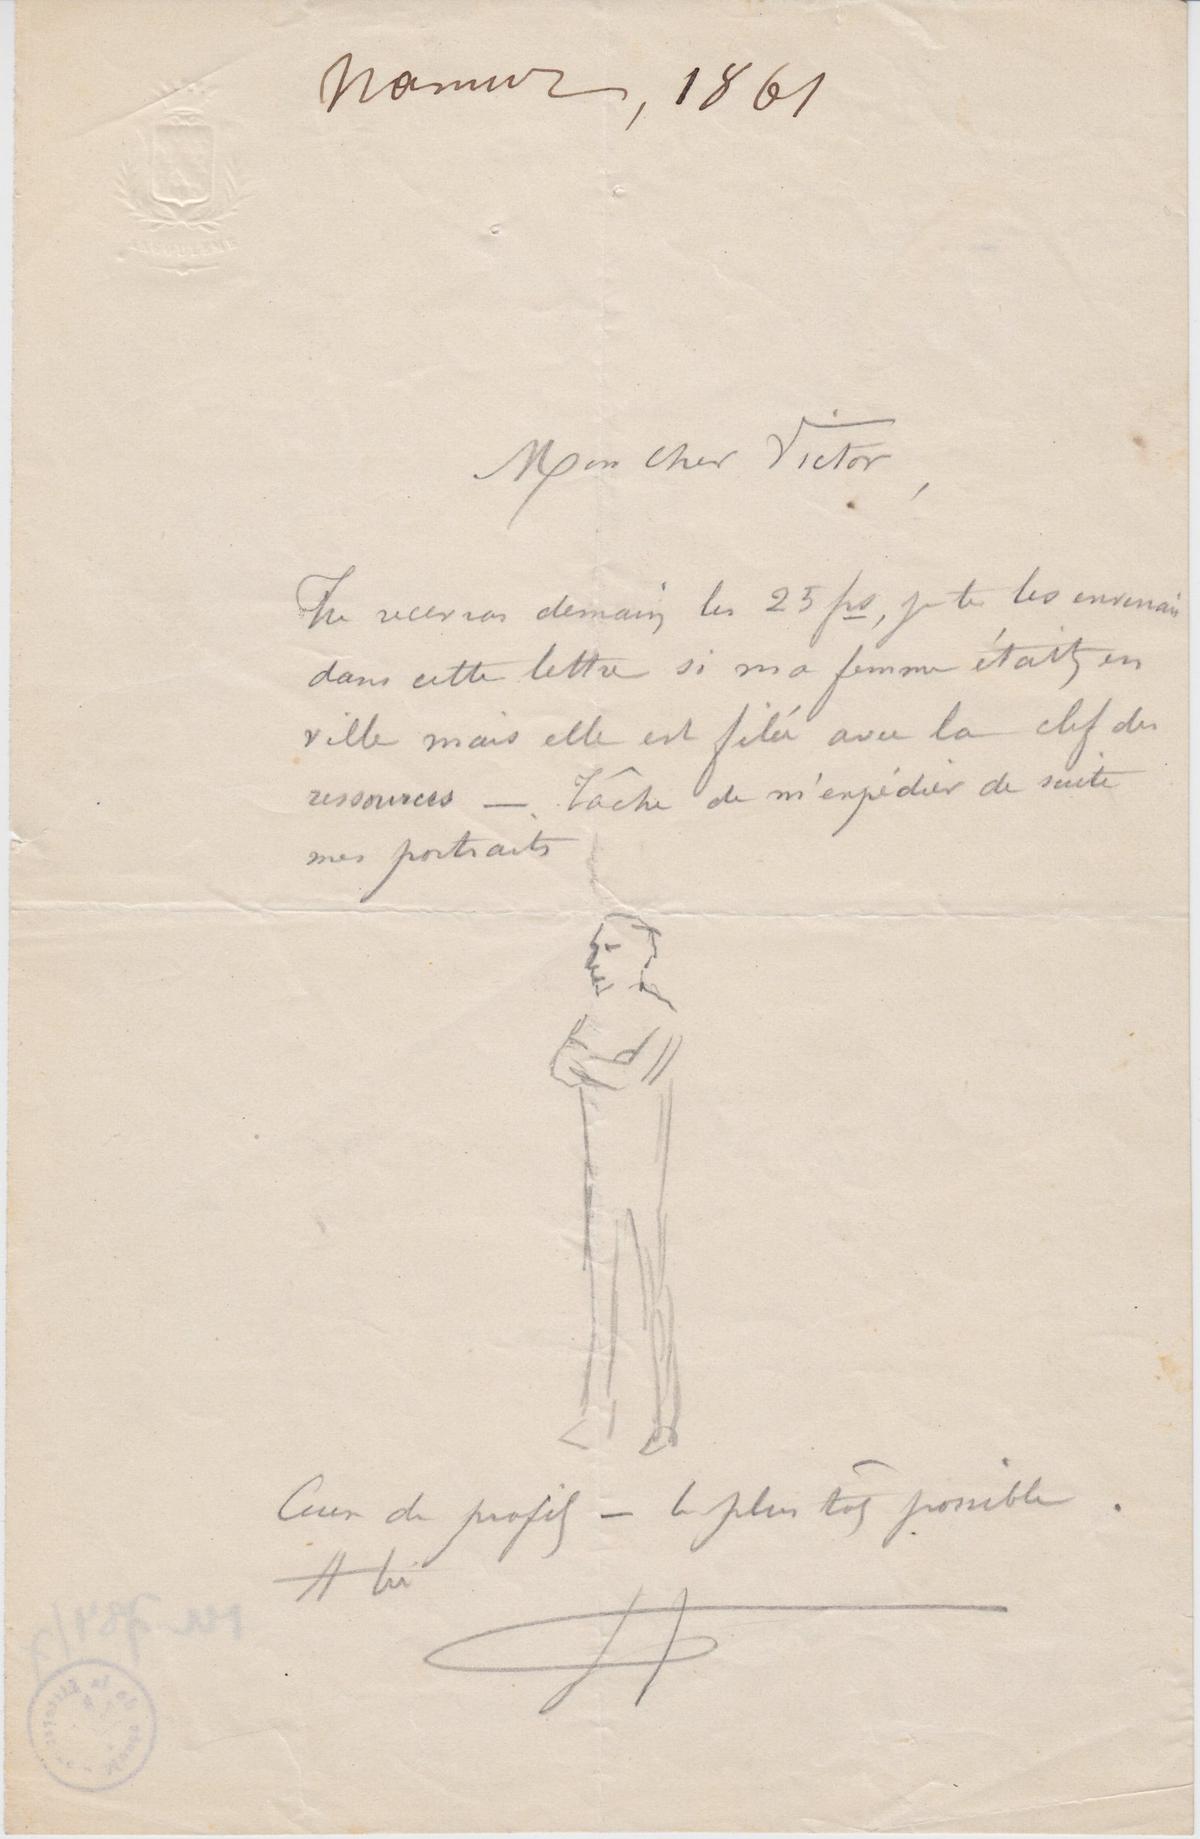 Namur, 1861
ANGOULEME
Mon cher Victor,
Tu recevras demain les 25 frs, je te les enverrais
dans cette lettre si ma femme était en
ville mais elle est filée avec la clef des
ressources —. Tâche de m'expédier de suite
mes portraits
Ceux de profil — le plus tôt possible.
A toi